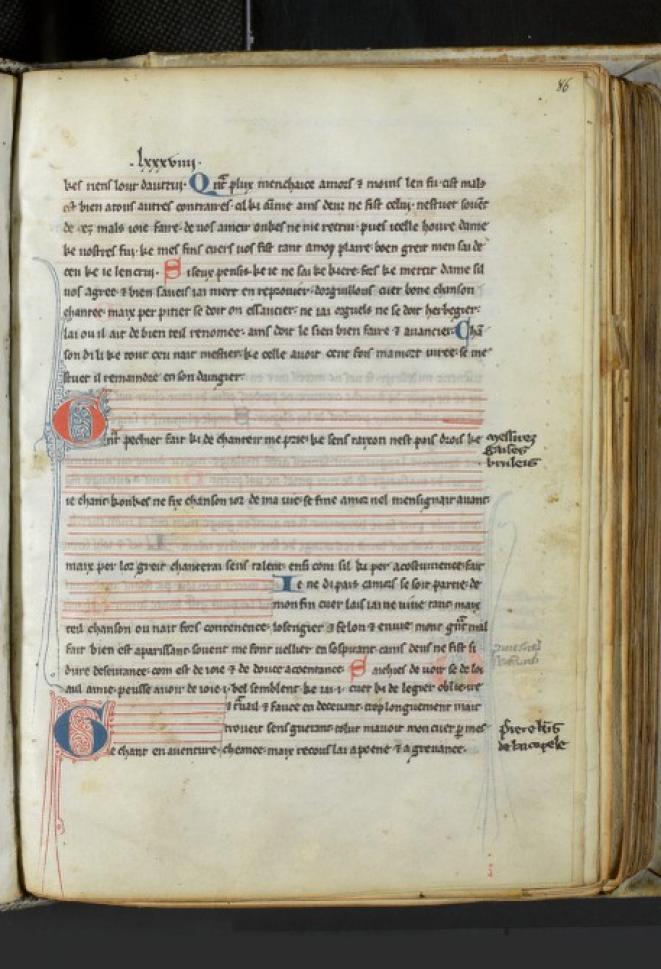 86
.lxxxviiij.
kes riens lour dautrui. Qnt plux menchaice amors & moins len fu. cist mals
est bien atous autres contraires. ains deus ne fist celui. nestuet
de mals ioie faire. de vos ameir onkes ne me retrui. pues icelle houre dame
ke vostres fui. ke mes fins cuers vos fist tant a moy plaire. boen greit men sai de
ceu ke ie lencrui. Si seux pensis. ke ie ne sai ke kiere. fors ke mercit dame sil
vos agree. & bien saveis iai niert en reprovier. dorguillous cuer bone chanson
chantee. maix per pitiet se doit on essaucier. ne iai orguels ne se doit herbegier.
lai ou il ait de bien teil renomee. ains doit le sien bien faire & avancier. Chan
son di li ke tout ceu nait mestier. ke celle avoit cent fois ma mort iuree. se me
stuet il remaindre en son dangier.
Gnt pechiet fait ki de chanteir me prie. ke sens raixon nest pais drois ke
messires
gaises
bruleis
ie chant. konkes ne fix chanson ior de ma vie. se fine amor nel mensignait avant.
maix por lor greit chanterai sens talent. ensi com sil ki per acostumence fait
Ie ne di pais camors se soit partie. de
mon fin cuer lais iai ne vive tant. maix
teil chanson ou nait fors contenence. losengier & felon & envie. mont gnt mal
fait bien est aparissant. sovent me font vellier en sospirant. cains deus ne fist si
dure desevrance. com est de ioie & de douce acoentance. Saichies de voir se de loi
aul amie. peusse avoir de ioie .i. bel semblent. ke iai .i. cuer ki de legier oblie. ire
travail & fauce en decevant. trop longuement mait
troveit sens guerant. mavoit mon cuer p mes
Se chant en aventure. cheance. maix recous lai a poene & a grevance.
piere kis
de la copele